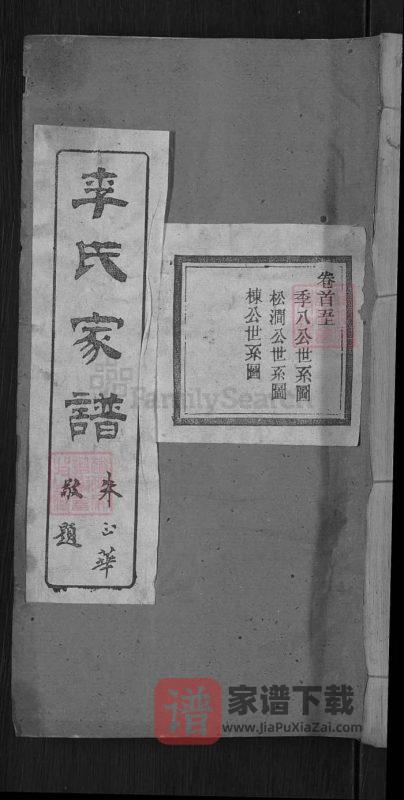 卷首五
季八公世系圖
松澗公世系圖
棟公世系圖
李氏家譜
朱正華
敬題
FamilySearch
谱
家谱下载
www.JiaPuXiaZai.com